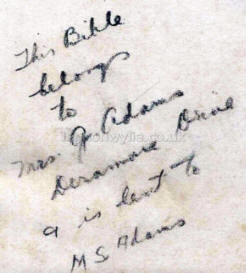 This Bible
belongs
to
Mrs. G Adams
Deramore Drive
a is lent to
M S Adams